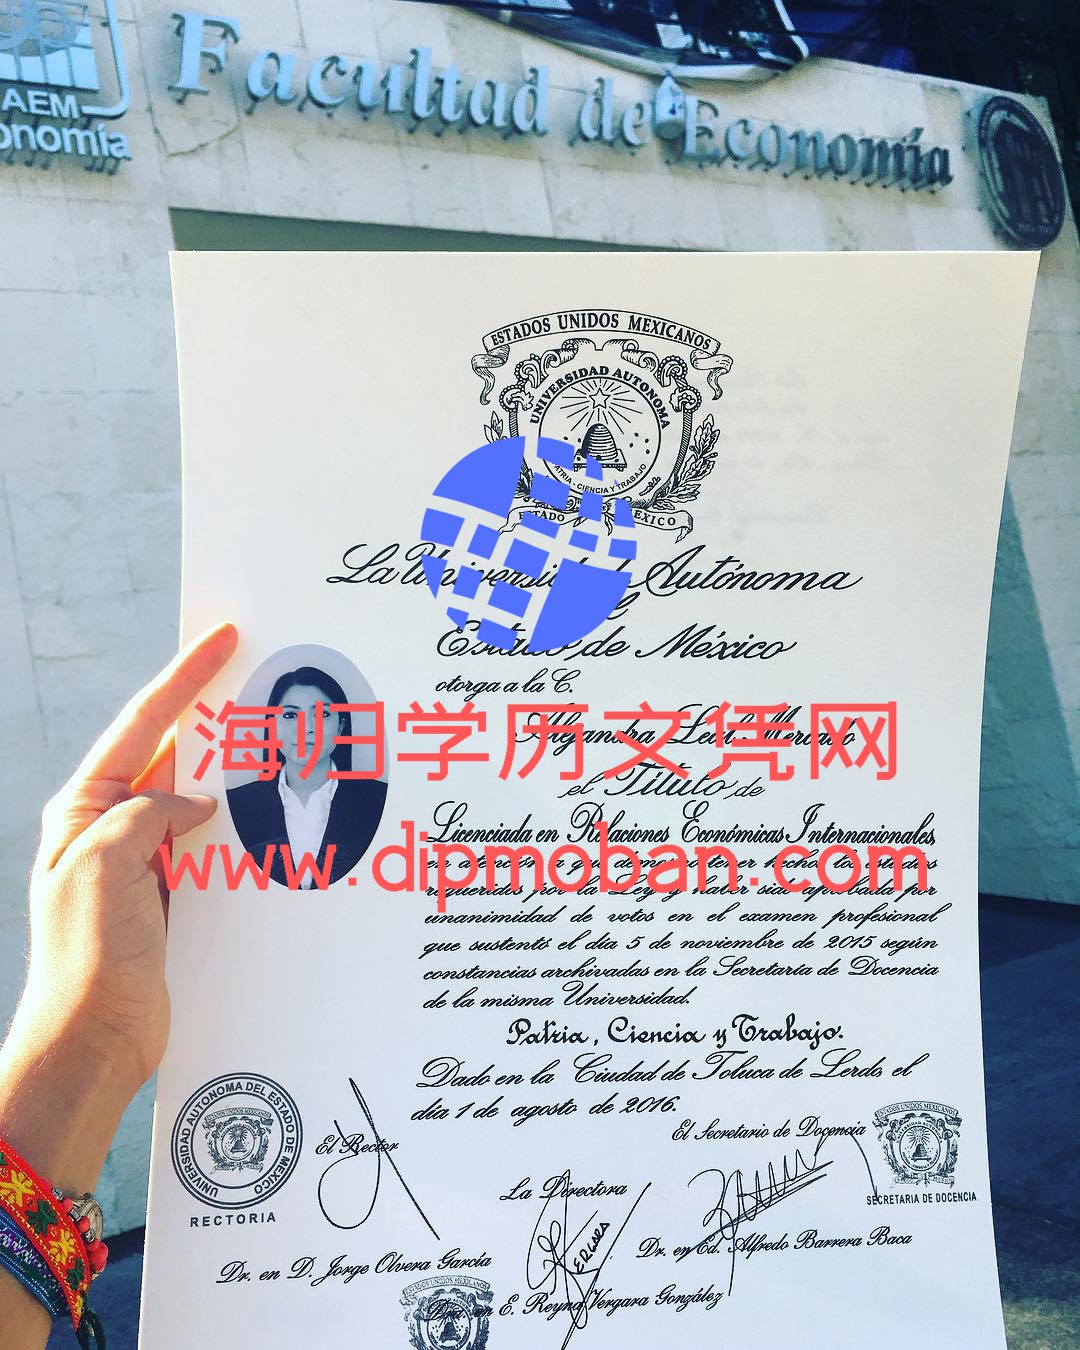 AEM
onomía
Facultad de Economía
ESTADOS UNIDOS MEXICANOS
UNIVERSIDAD AUTONOMA
PATRIA - CIENCIA Y TRABAJO
ESTADO MEXICO
La Universidad Autónoma
del
Estado de México
otorga a la C.
海归学历文凭网
Alejandra Leal Mercado
el Título de
Licenciada en Relaciones Económicas Internacionales,
www.dipmoban.com
en atención a que demostró tener hechos los estudios
requeridos por la Ley y haber sido aprobada por
unanimidad de votos en el examen profesional
que sustentó el día 5 de noviembre de 2015 según
constancias archivadas en la Secretaría de Docencia
de la misma Universidad.
Patria, Ciencia y Trabajo.
Dado en la Ciudad de Toluca de Lerdo, el
día 1 de agosto de 2016.
UNIVERSIDAD AUTONOMA DEL ESTADO DE MEXICO
RECTORIA
El Rector
El Secretario de Docencia
ESTADOS UNIDOS MEXICANOS
SECRETARIA DE DOCENCIA
La Directora
Dr. en D. Jorge Olvera García
Dr. en Ed. Alfredo Barrera Baca
ESTADOS UNIDOS MEXICANOS
Dra. en E. Reyna Vergara González